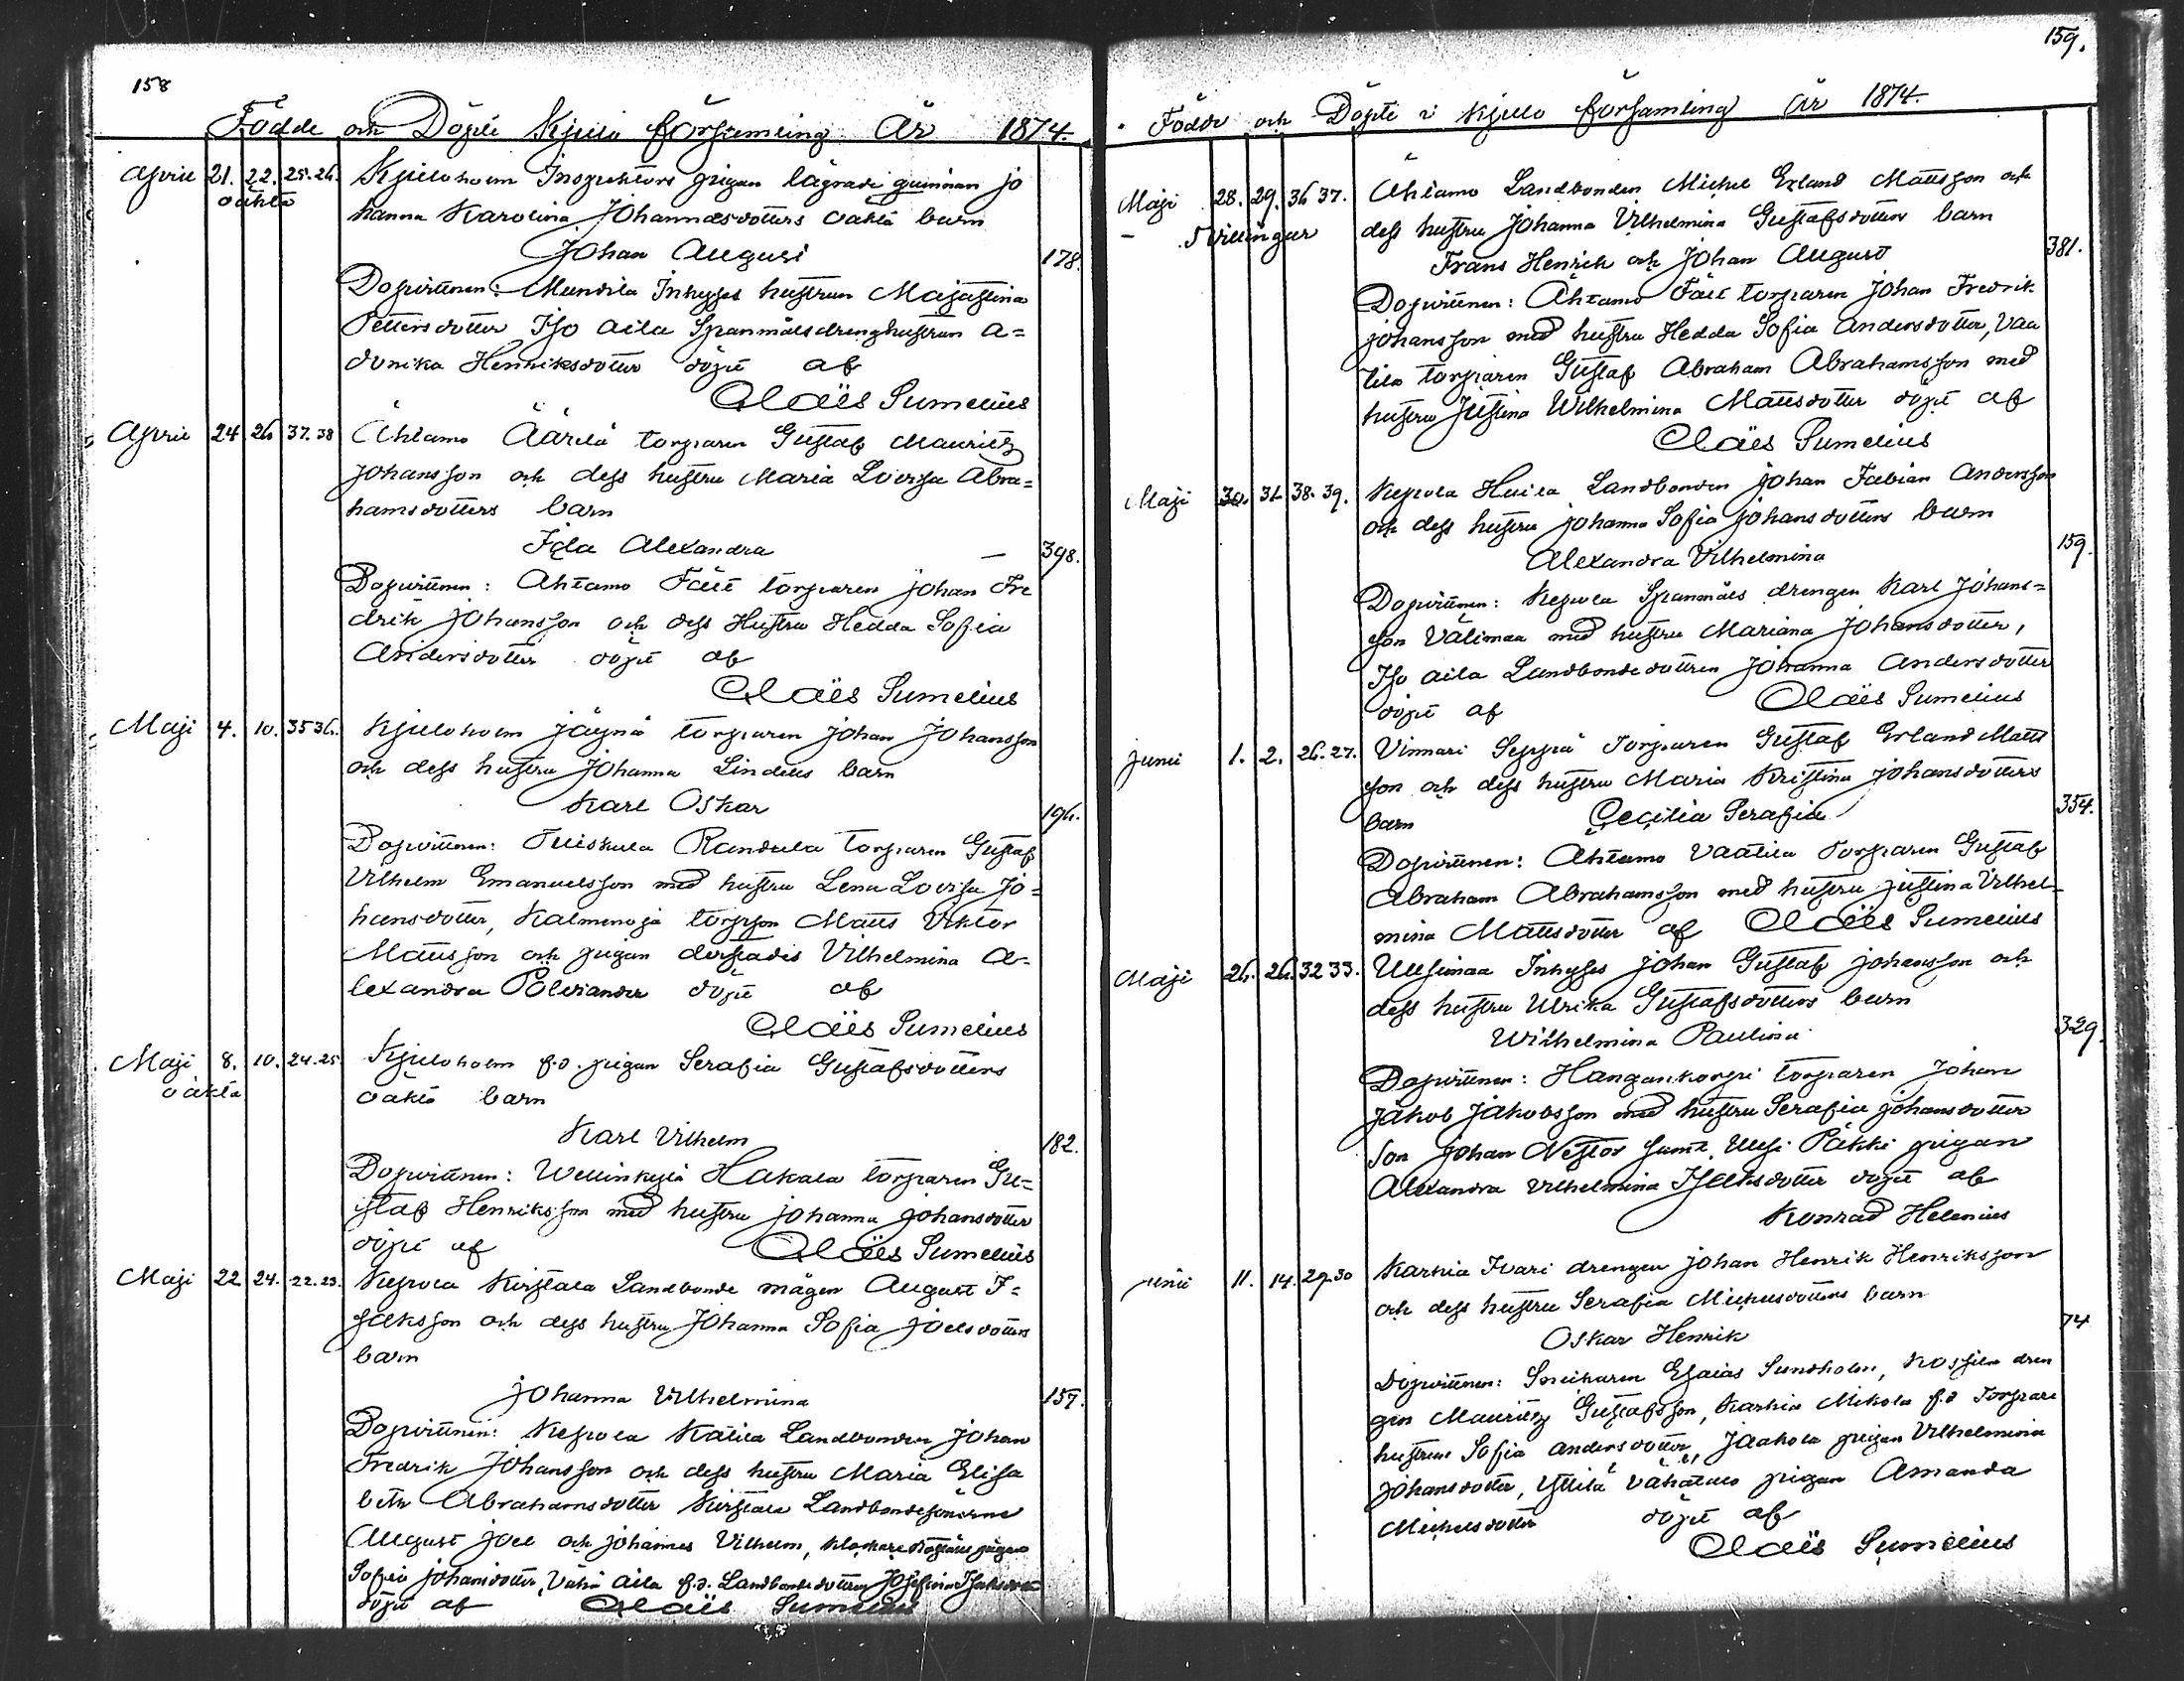 158
Födde och Döpte Kjulo församling År 1874.
April 21. 22. 25.26. Kjuloholm Inspektors pigan lägrade quinnan Jo
oäkta hanna Karolina Johannesdotters oäkta barn
Johan August 178.
Dopvittnen: Mundila Inhyses hustrun Majastina
Pettersdotter Iso Aila Spanmålsdrenghustrun A=
donika Henriksdotter döpt af
Claës Sumelius
April 24 26 37.38 Åhtamo Äärilä torparen Gustaf Mauritz
Johansson och dess hustru Maria Lovisa Abra=
hamsdotters barn
Ida Alexandra — 398.
Dopvittnen: Ahtamo Fält torparen Johan Fre
drik Johansson och dess Hustru Hedda Sofia
Andersdotter döpt af
Claës Sumelius
Maji 4. 10. 35 36. Kjuloholm Jäynä torparen Johan Johansson
och dess hustru Johanna Lindells barn
Karl Oskar 196.
Dopvittnen: Tuiskula Randala torparen Gustaf
Vilhelm Emanuelsson med hustru Lena Lovisa Jo=
hansdotter, Kalmenoja torpson Matts Viktor
Mattsson och pigan derstädes Vilhelmina A=
lexandra döpt af
Claës Sumelius
Maji 8. 10. 24.25. Kjuloholm f.d. pigan Serafia Gustafsdotters
oäkta oäkta barn
Karl Vilhelm 182.
Dopvittnen: Wellinkylä Hakala torparen Gu=
staf Henriksson med hustru Johanna Johansdotter
döpt af Claës Sumelius
Maji 22 24. 22.23. Kepola Kirstala Landbonde mågen August I=
saksson och dess hustru Johanna Sofia Joelsdotters
barn
Johanna Vilhelmina 157.
Dopvittnen: Kepola Kätilä Landbonden Johan
Fredrik Johansson och dess hustru Maria Elisa
beth Abrahamsdotter Kirstala Landbondesönerne
August Joel och Johannes Vilhelm, klockare pigan
Sofia Johansdotter, Vähä Aila f.d. Landbondedottren Josefina Isaksdotter
döpt af Claës Sumelius
159.
Födde och Döpte i Kjulo församling År 1874.
Maji 28. 29. 36 37. Åhtamo Landbonden Michel Erland Mattsson och
— Tvillingar dess hustru Johanna Vilhelmina Gustafsdotters barn
Frans Henrik och Johan August 381.
Dopvittnen: Åhtamo Fält torparen Johan Fredrik
Johansson med hustru Hedda Sofia Andersdotter, Vaa
tila torparen Gustaf Abraham Abrahamsson med
hustru Justina Wilhelmina Mattsdotter döpt af
Claës Sumelius
Maji 30. 31. 38. 39. Kepola Huila Landbonden Johan Fabian Andersson
och dess hustru Johanna Sofia Johansdotters barn
Alexandra Vilhelmina 159.
Dopvittnen: Kepola Spanmåls drengen Karl Johans=
son Välimaa med hustru Mariana Johansdotter,
Iso aila Landbondedottren Johanna Andersdotter
döpt af Claës Sumelius
Junii 1. 2. 26.27. Vinnari Seppä Torparen Gustaf Erland Matts
son och dess hustru Maria Kristina Johansdotters
barn Cecilia Serafia 354.
Dopvittnen: Åhtamo Vaatila Torparen Gustaf
Abraham Abrahamsson med hustru Justina Vilhel=
mina Mattsdotter af Claës Sumelius
Maji 24. 26. 32 33. Uusimaa Inhyses Johan Gustaf Johansson och
dess hustru Ulrika Gustafsdotters barn
Wilhelmina Paulina 329.
Dopvittnen: Hangankorpi torparen Johan
Jakob Jakobsson med hustru Serafia Johansdotter
Son Johan Nestor samt, Uusi Päkki pigan
Alexandra Vilhelmina Isaksdotter döpt af
Konrad Helenius
Junii 11. 14. 29.30 Karhia Ivari drengen Johan Henrik Henriksson
och dess hustru Serafia Michelsdotters barn
Oskar Henrik 74
Dopvittnen: Snickaren Esaias Sundholm, dren
gen Mauritz Gustafsson, Karhia Mikola f.d Torpare
hustrun Sofia Andersdotter, Jaakola pigan Vilhelmina
Johansdotter, Yttilä Vähätalo pigan Amanda
Michelsdotter döpt af
Claës Sumelius